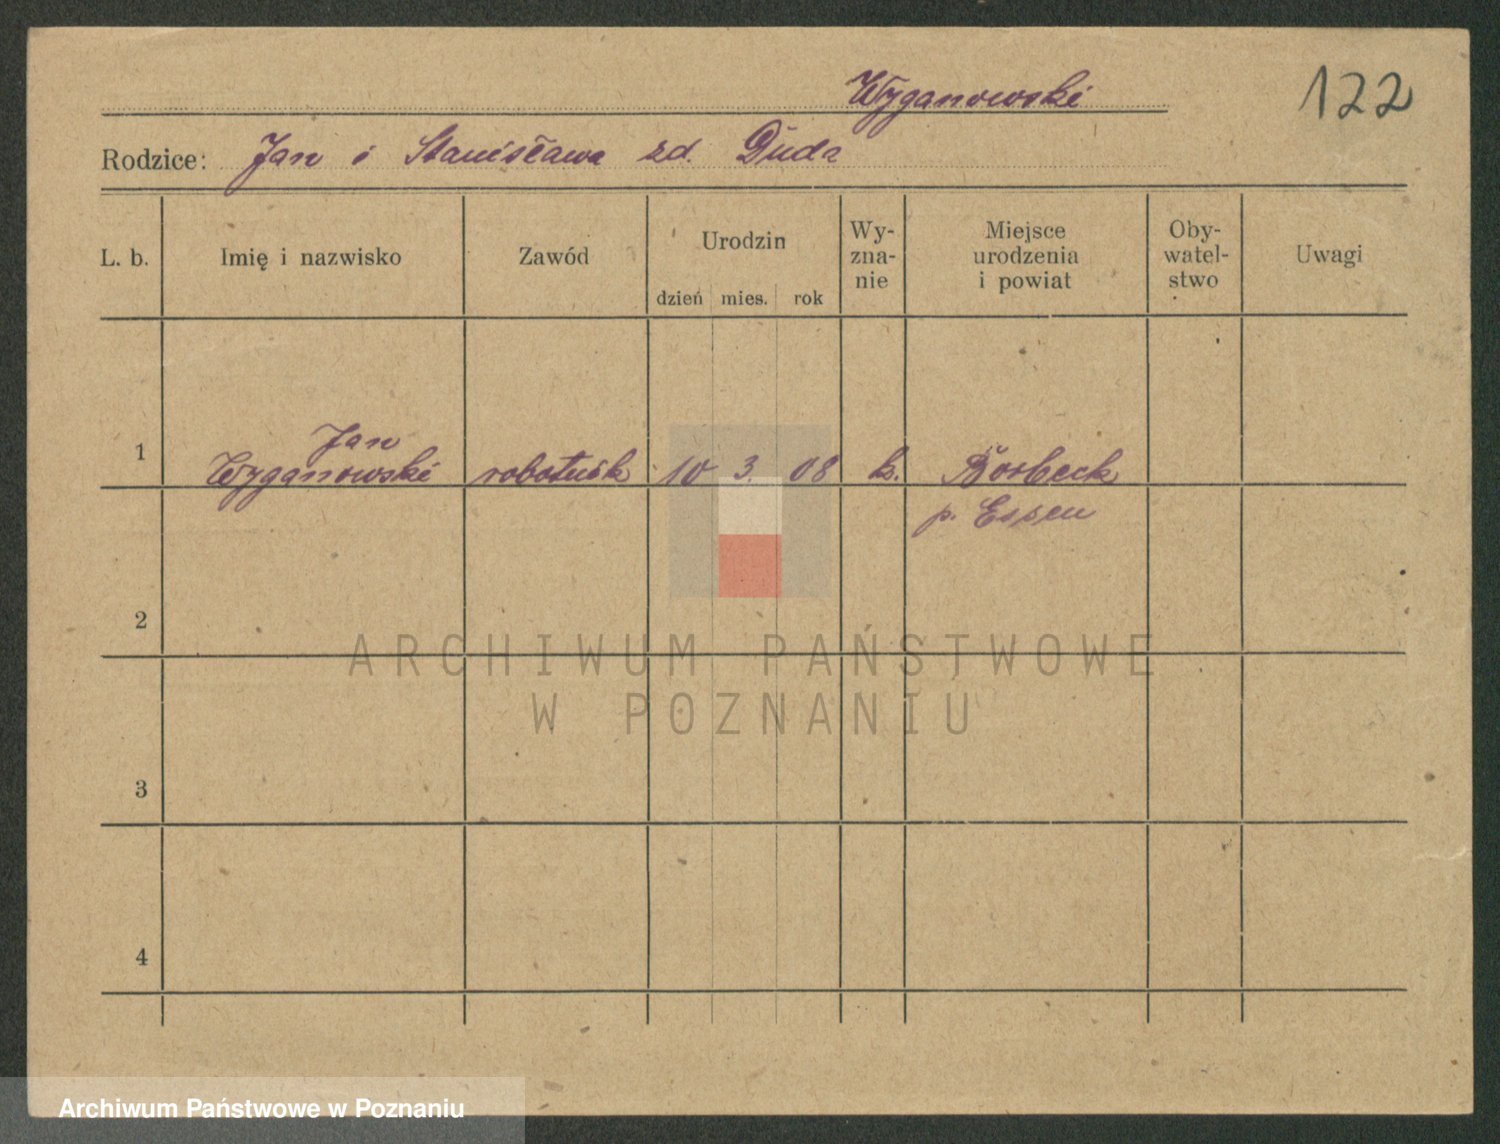 Wyganowski
122
Rodzice: Jan i Stanisława zd. Duda
L. b.
Imię i nazwisko
Zawód
Urodzin
dzień mies. rok
Wy-
zna-
nie
Miejsce
urodzenia
i powiat
Oby-
watel-
stwo
Uwagi
1
Jan
Wyganowski robotnik 10 3. 08 k. Borbeck
p. Essen
2
3
4
ARCHIWUM PAŃSTWOWE
W POZNANIU
Archiwum Państwowe w Poznaniu